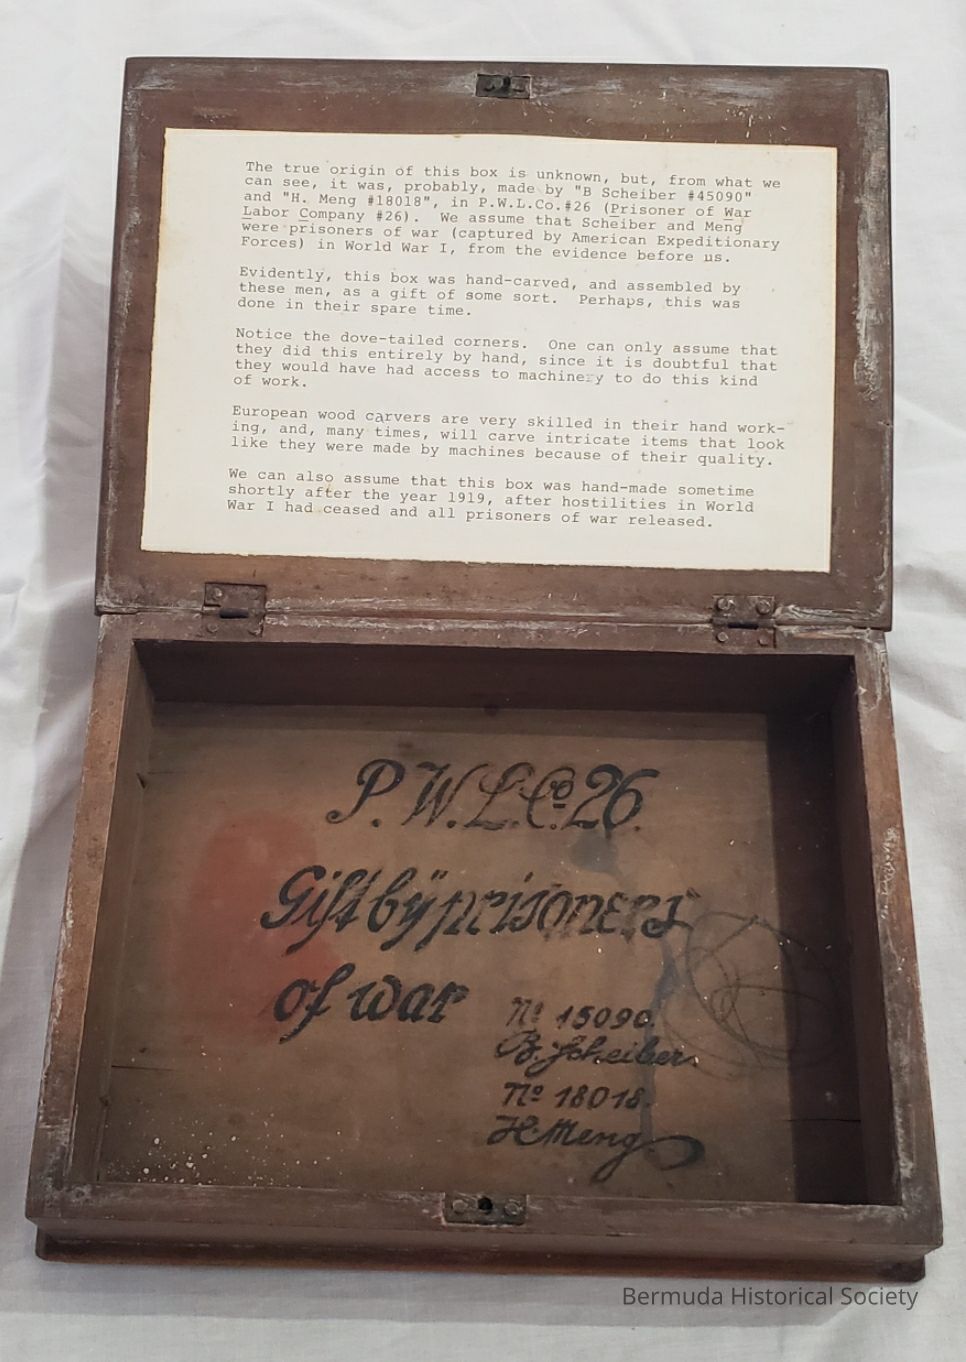 The true origin of this box is unknown, but, from what we
can see, it was, probably, made by "B Scheiber #45090"
and "H. Meng #18018", in P.W.L.Co.#26 (Prisoner of War
Labor Company #26).  We assume that Scheiber and Meng
were prisoners of war (captured by American Expeditionary
Forces) in World War I, from the evidence before us.
Evidently, this box was hand-carved, and assembled by
these men, as a gift of some sort.  Perhaps, this was
done in their spare time.
Notice the dove-tailed corners.  One can only assume that
they did this entirely by hand, since it is doubtful that
they would have had access to machinery to do this kind
of work.
European wood carvers are very skilled in their hand work-
ing, and, many times, will carve intricate items that look
like they were made by machines because of their quality.
We can also assume that this box was hand-made sometime
shortly after the year 1919, after hostilities in World
War I had ceased and all prisoners of war released.
P.W.L.Co.26.
Gift bÿ prisoners
of war
No 15090.
B. Scheiber.
No 18018.
H. Meng
Bermuda Historical Society